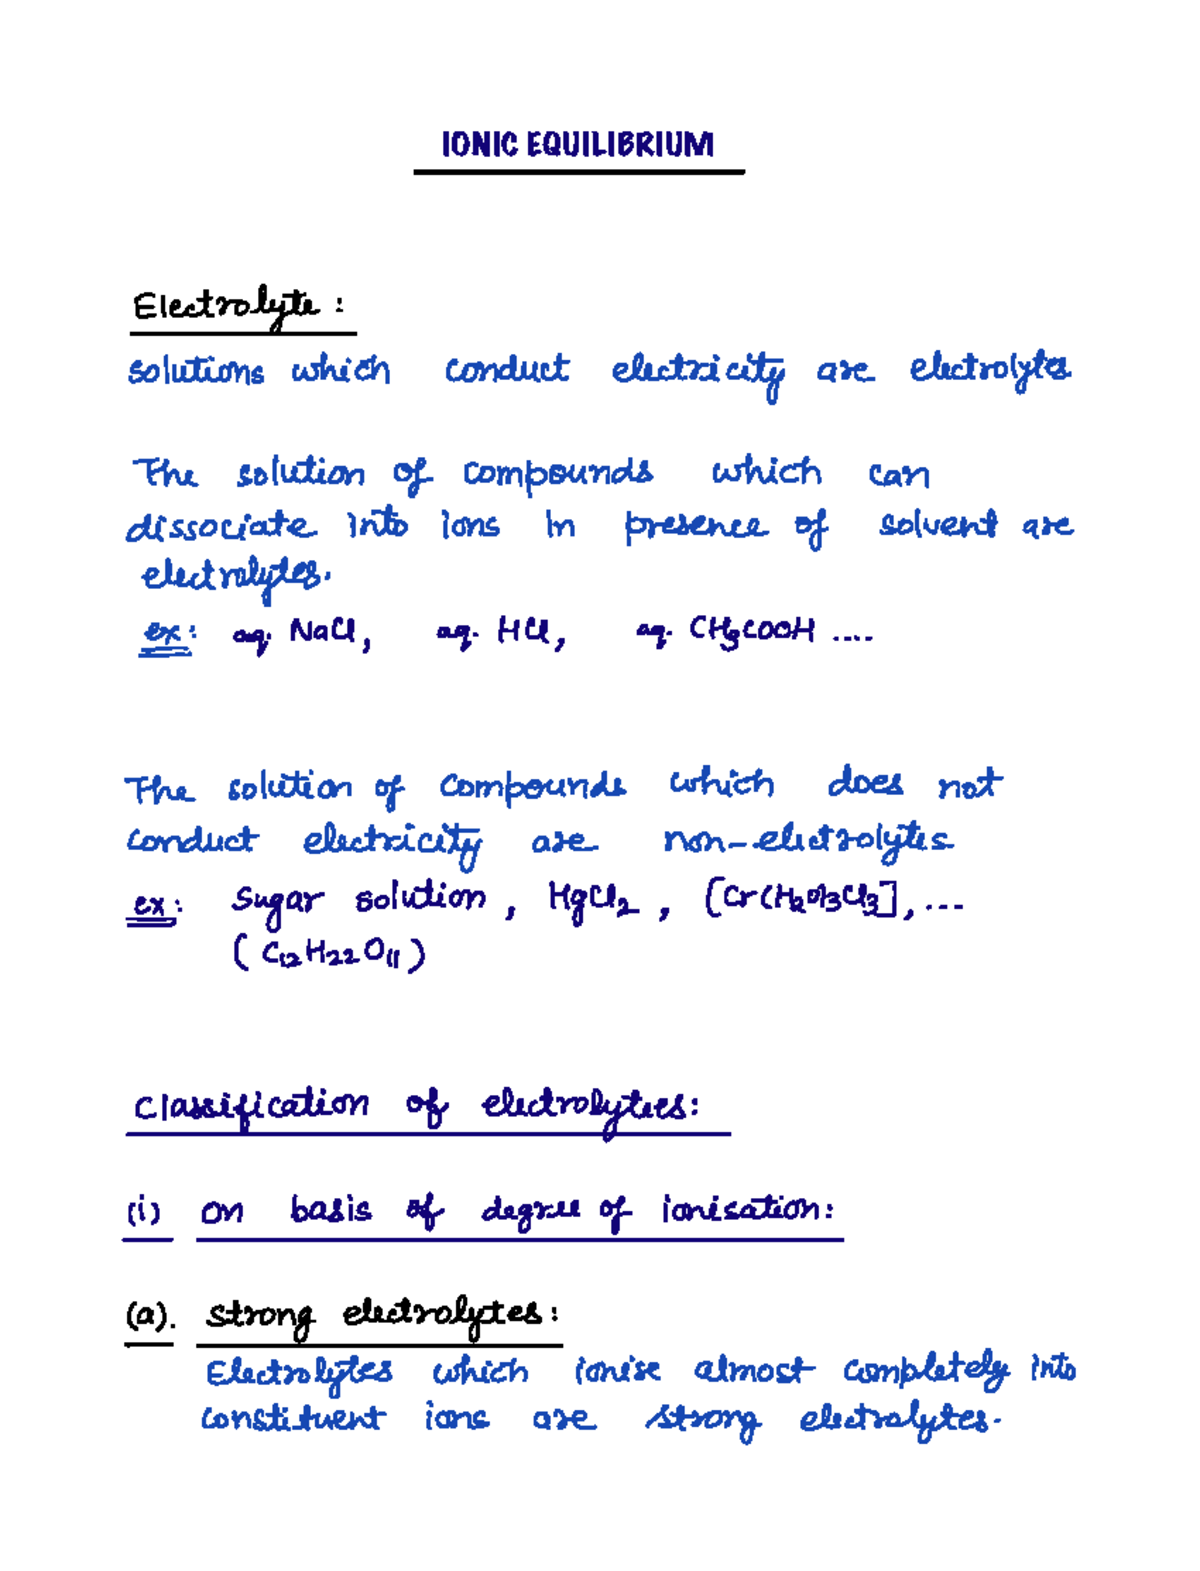 IONIC EQUILIBRIUM
Electrolyte :
solutions which conduct electricity are electrolytes
The solution of compounds which can
dissociate into ions in presence of solvent are
electrolytes.
ex: aq. NaCl, aq. HCl, aq. CH3COOH ....
The solution of compounds which does not
conduct electricity are non-electrolytes
ex: Sugar solution, HgCl2, [Cr(H2O)3Cl3], ...
(C12H22O11)
Classification of electrolytes:
(i) on basis of degree of ionisation:
(a). strong electrolytes:
Electrolytes which ionise almost completely into
constituent ions are strong electrolytes.